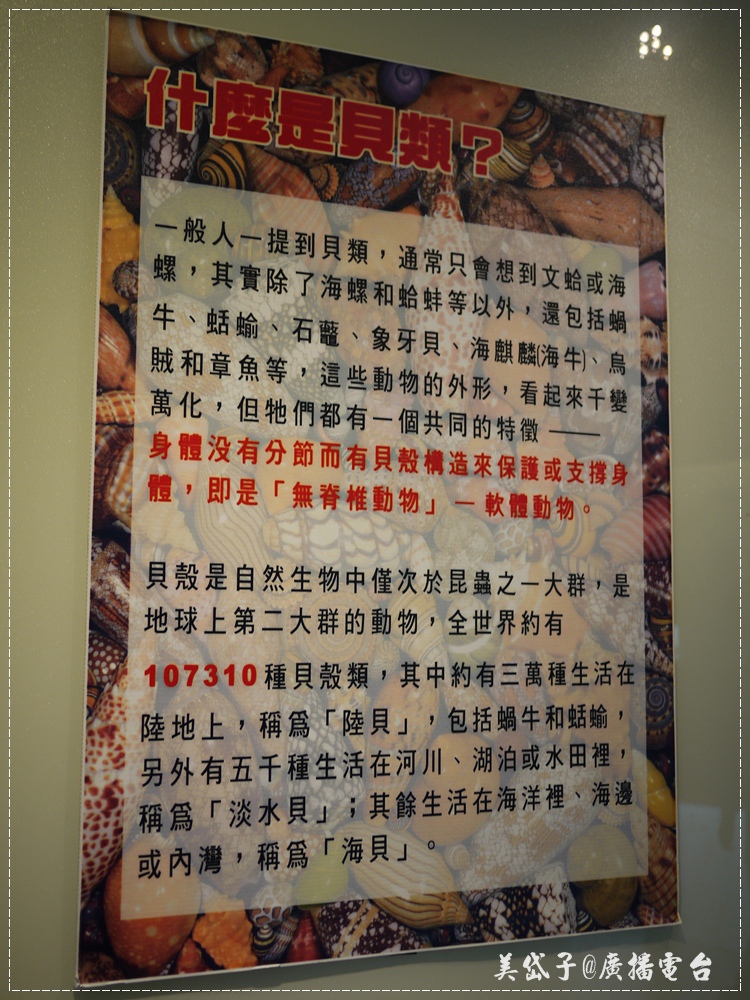 什麼是貝類？
一般人一提到貝類，通常只會想到文蛤或海
螺，其實除了海螺和蛤蚌等以外，還包括蝸
牛、蛞蝓、石鼈、象牙貝、海麒麟(海牛)、烏
賊和章魚等，這些動物的外形，看起來千變
萬化，但牠們都有一個共同的特徵 ——
身體沒有分節而有貝殼構造來保護或支撐身
體，即是「無脊椎動物」— 軟體動物。
貝殼是自然生物中僅次於昆蟲之一大群，是
地球上第二大群的動物，全世界約有
107310種貝殼類，其中約有三萬種生活在
陸地上，稱為「陸貝」，包括蝸牛和蛞蝓，
另外有五千種生活在河川、湖泊或水田裡，
稱為「淡水貝」；其餘生活在海洋裡、海邊
或內灣，稱為「海貝」。
美岱子@廣播電台